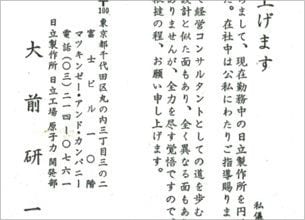 私儀
上げます
まして、現在勤務中の日立製作所を円
た。在社中は公私にわたりご指導賜りま
て経営コンサルタントとしての道を歩む
設計と似た面もあり、全く異なる面もあ
ありませんが、全力を尽す覚悟ですので
撻の程、お願い申し上げます。
〒100 東京都千代田区丸の内三丁目三の二
富士ビル一〇階
マツキンゼー・アンド・カンパニー
電話(〇三)二一四―〇七六一
日立製作所 日立工場 原子力開発部
大前研一